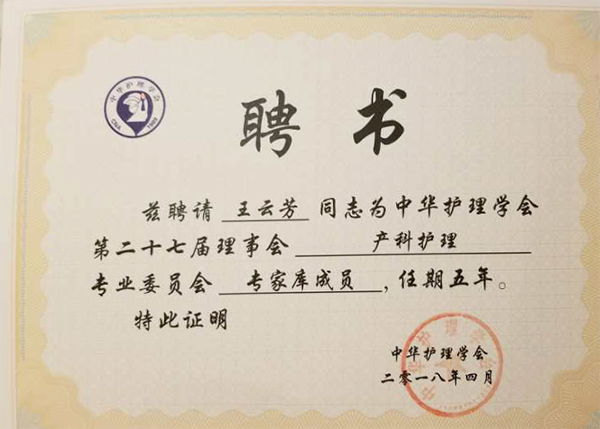 中华护理学会
CNA 1909
聘书
兹聘请 王云芳 同志为中华护理学会
第二十七届理事会 产科护理
专业委员会 专家库成员 ,任期五年。
特此证明
中华护理学会
中华护理学会
二零一八年四月